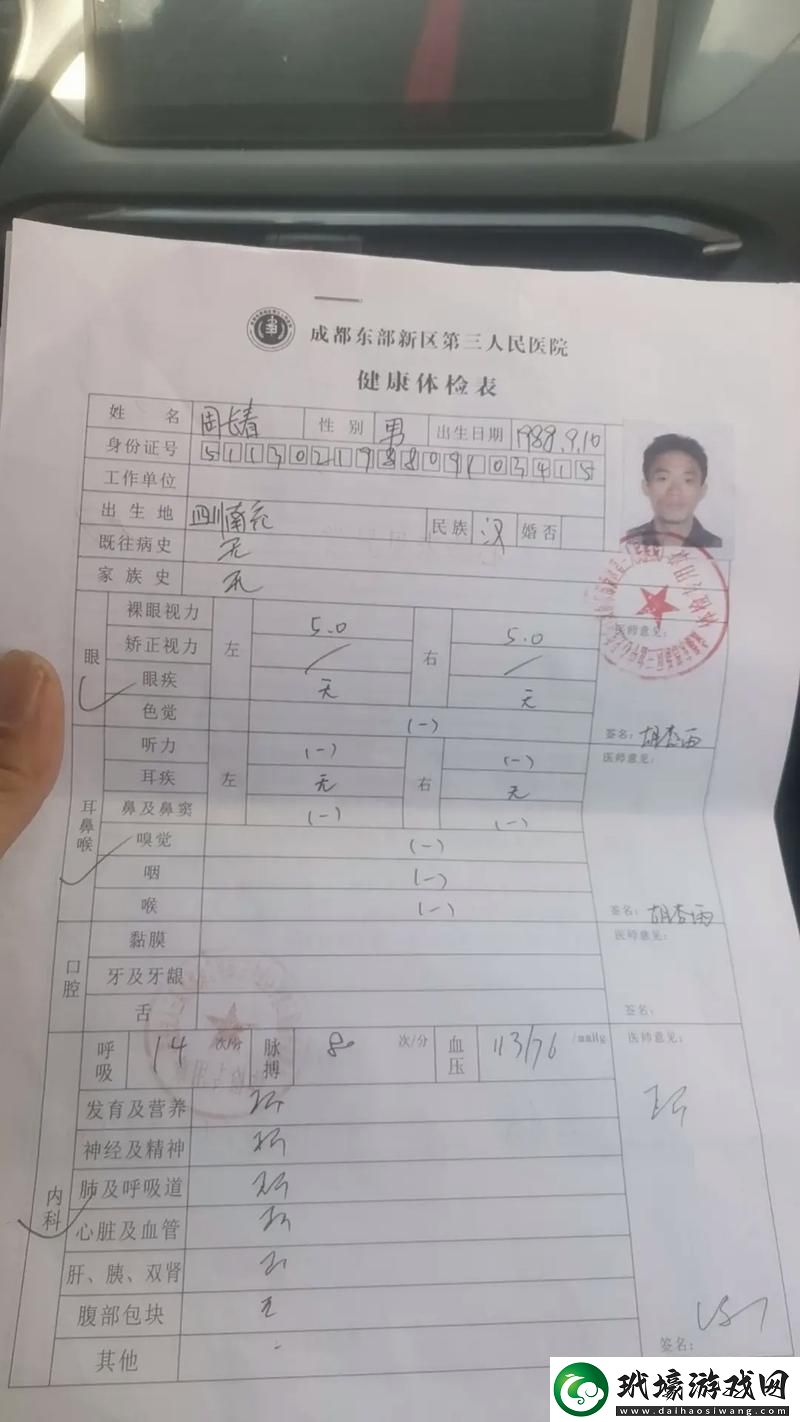 成都东部新区第三人民医院
健康体检表
姓名 周长春 性别 男 出生日期 1988.9.10
身份证号 511302198809103415
工作单位
出生地 四川南充 民族 汉 婚否
既往病史 无
家族史 无
眼 裸眼视力 左 5.0 右 5.0 医师意见:
矫正视力 / /
眼疾 无 无
色觉 (-) 签名: 胡杏雨
耳鼻喉 听力 左 (-) 右 (-) 医师意见:
耳疾 无 无
鼻及鼻窦 (-) (-)
嗅觉 (-)
咽 (-)
喉 (-) 签名: 胡杏雨
口腔 黏膜 医师意见:
牙及牙龈
舌 签名:
内科 呼吸 14 次/分 脉搏 80 次/分 血压 113/76 /mmHg 医师意见:
发育及营养
神经及精神
肺及呼吸道
心脏及血管
肝、胰、双肾
腹部包块 无
其他 -
签名:
玳壕游戏网
www.daihaosiwang.com